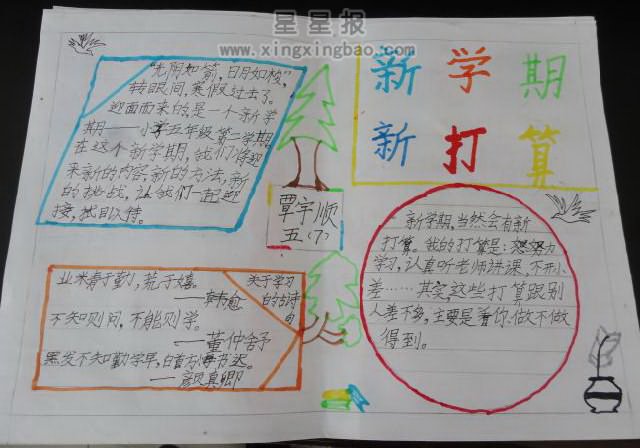 星星报
www.xingxingbao.com
“光阴如箭，日月如梭”，
转眼间，寒假过去了。
迎面而来的是一个新学
期——小学五年级第一学期。
在这个新学期，我们将迎
来新的内容，新的方法，新
的挑战，让我们一起迎
接，拭目以待。
新学期
新打算
覃宇顺
五(7)
新学期，当然会有新
打算。我的打算是：努力
学习，认真听老师讲课，不开小
差……其实，这些打算跟别
人差不多，主要是看你做不做
得到。
关于学习
的古诗
句
业精于勤，荒于嬉。
——韩愈
不知则问，不能则学。
——董仲舒
黑发不知勤学早，白首方悔书迟。
——颜真卿